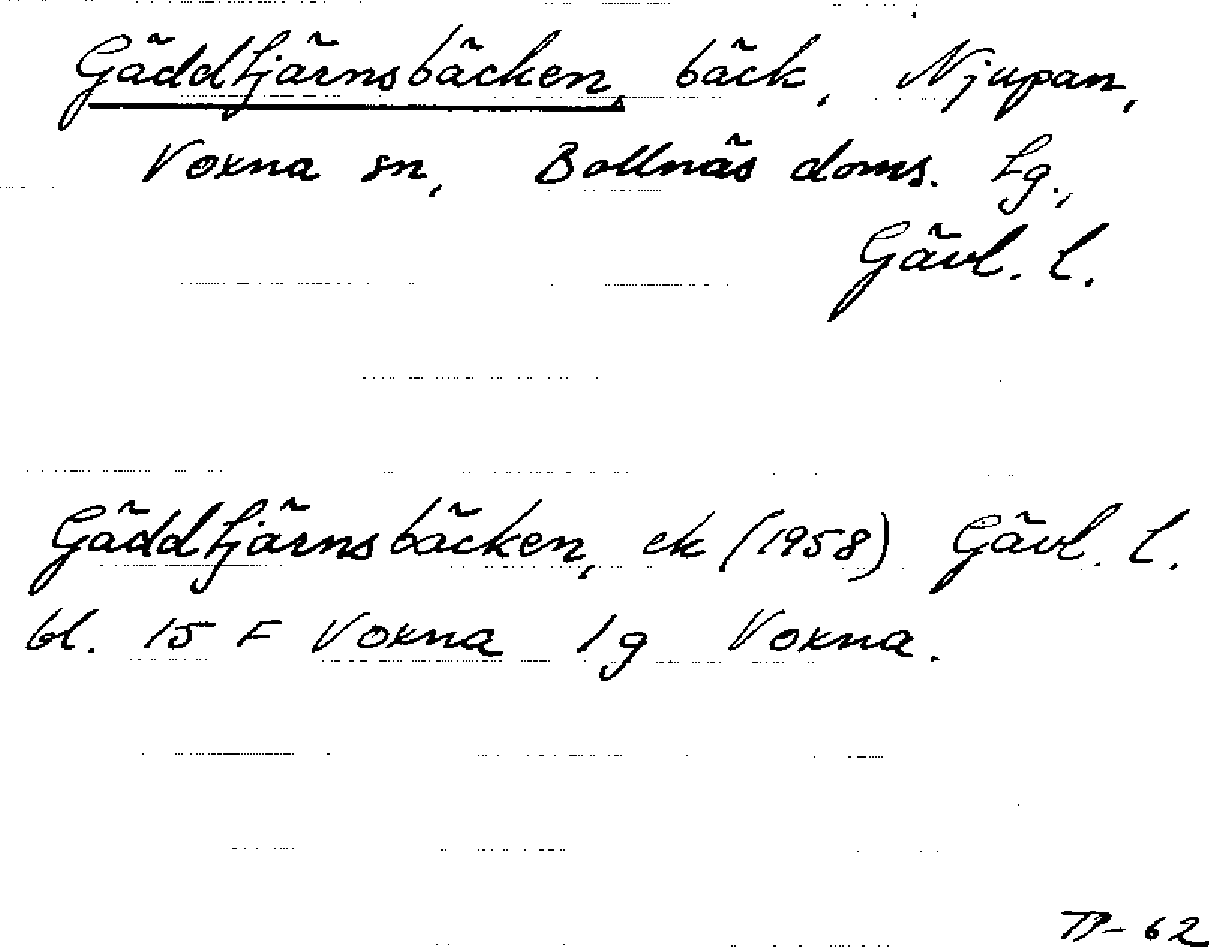 Gäddtjärnsbäcken, bäck, Njupan,
Voxna sn, Bollnäs doms. Lg.,
Gävl. l.
Gäddtjärnsbäcken, ek (1958) Gävl. l.
bl. 15 F Voxna 1g Voxna.
TP-62